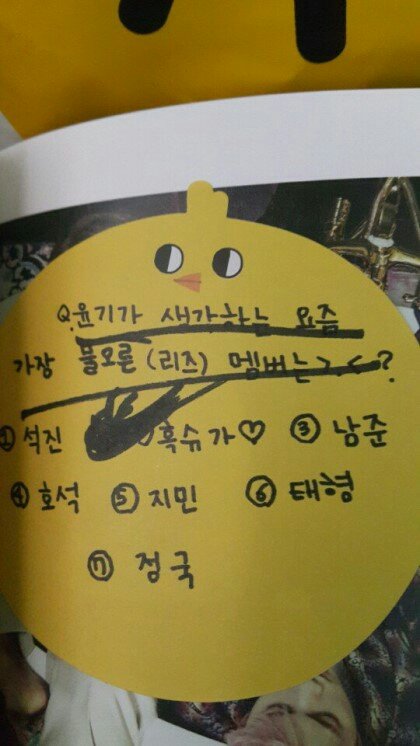 Q.윤기가 생각하는 요즘
가장 물오른 (리즈) 멤버는>.<?
① 석진 흑슈가♡ ③ 남준
④ 호석 ⑤ 지민 ⑥ 태형
⑦ 정국